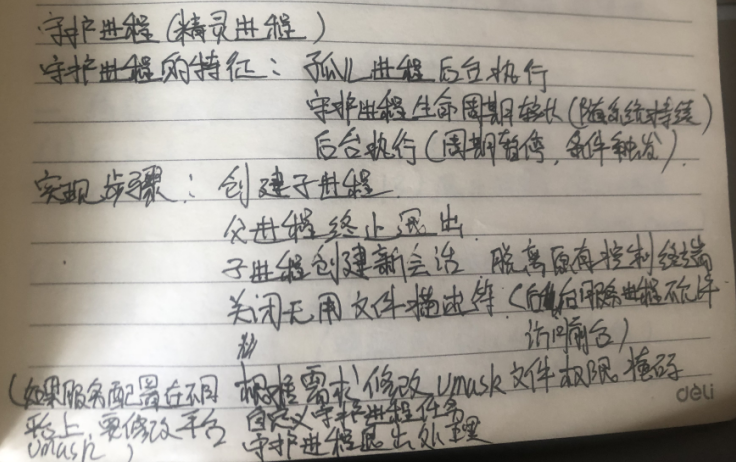 守护进程（精灵进程）
守护进程的特征：孤儿进程 后台执行
守护进程生命周期较长（随系统持续）
后台执行（周期暂停，条件触发）
实现步骤：创建子进程
父进程终止退出
子进程创建新会话 脱离原有控制终端
关闭无用文件描述符（后台服务进程不允许
访问前台）
根据需求修改umask文件权限掩码
（如果服务配置在不同
平台上，要修改平台
umask）
自定义守护进程任务
守护进程退出处理
deli